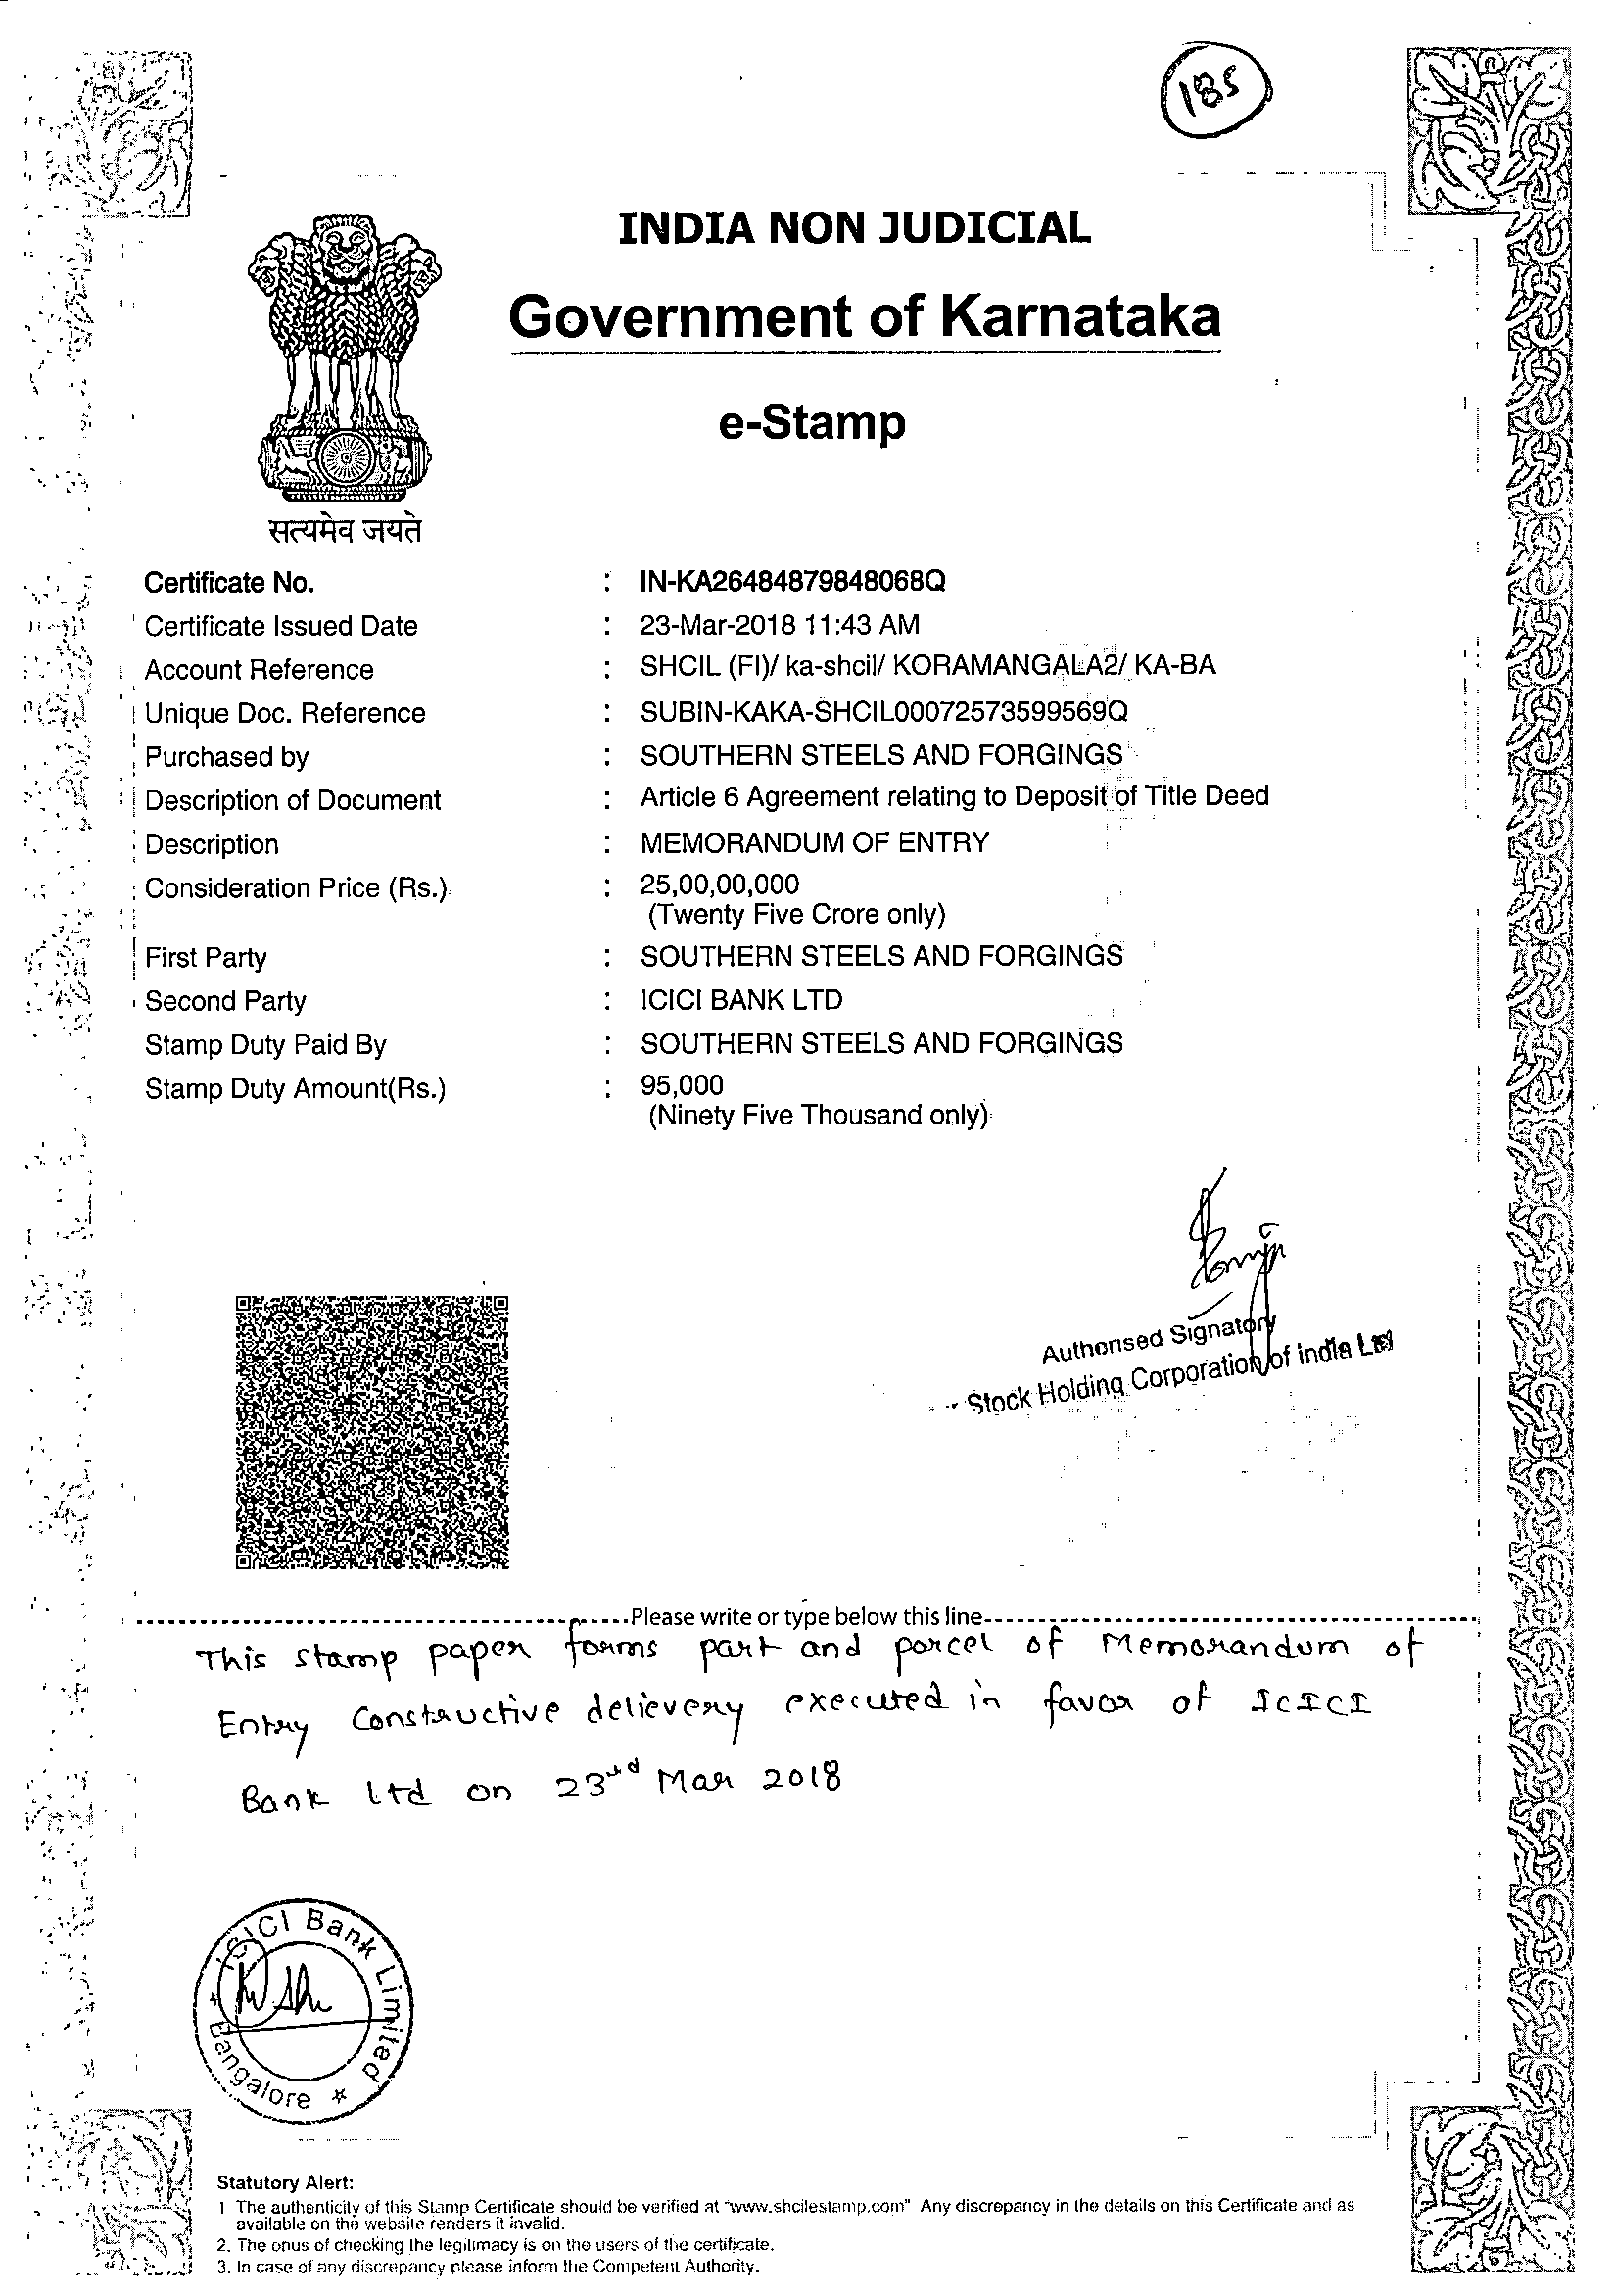 185
INDIA NON JUDICIAL
Government of Karnataka
e-Stamp
सत्यमेव जयते
Certificate No. : IN-KA26484879848068Q
Certificate Issued Date : 23-Mar-2018 11:43 AM
Account Reference : SHCIL (FI)/ ka-shcil/ KORAMANGALA2/ KA-BA
Unique Doc. Reference : SUBIN-KAKA-SHCIL00072573599569Q
Purchased by : SOUTHERN STEELS AND FORGINGS
Description of Document : Article 6 Agreement relating to Deposit of Title Deed
Description : MEMORANDUM OF ENTRY
Consideration Price (Rs.) : 25,00,00,000
(Twenty Five Crore only)
First Party : SOUTHERN STEELS AND FORGINGS
Second Party : ICICI BANK LTD
Stamp Duty Paid By : SOUTHERN STEELS AND FORGINGS
Stamp Duty Amount(Rs.) : 95,000
(Ninety Five Thousand only)
Authorised Signatory
Stock Holding Corporation of India Ltd
Please write or type below this line
This stamp paper forms part and parcel of Memorandum of
Entry Constructive delievery executed in favor of ICICI
Bank Ltd on 23rd Mar 2018
ICICI Bank Limited
Bangalore
Statutory Alert:
1 The authenticity of this Stamp Certificate should be verified at "www.shcilestamp.com" Any discrepancy in the details on this Certificate and as
available on the website renders it invalid.
2. The onus of checking the legitimacy is on the users of the certificate.
3. In case of any discrepancy please inform the Competent Authority.